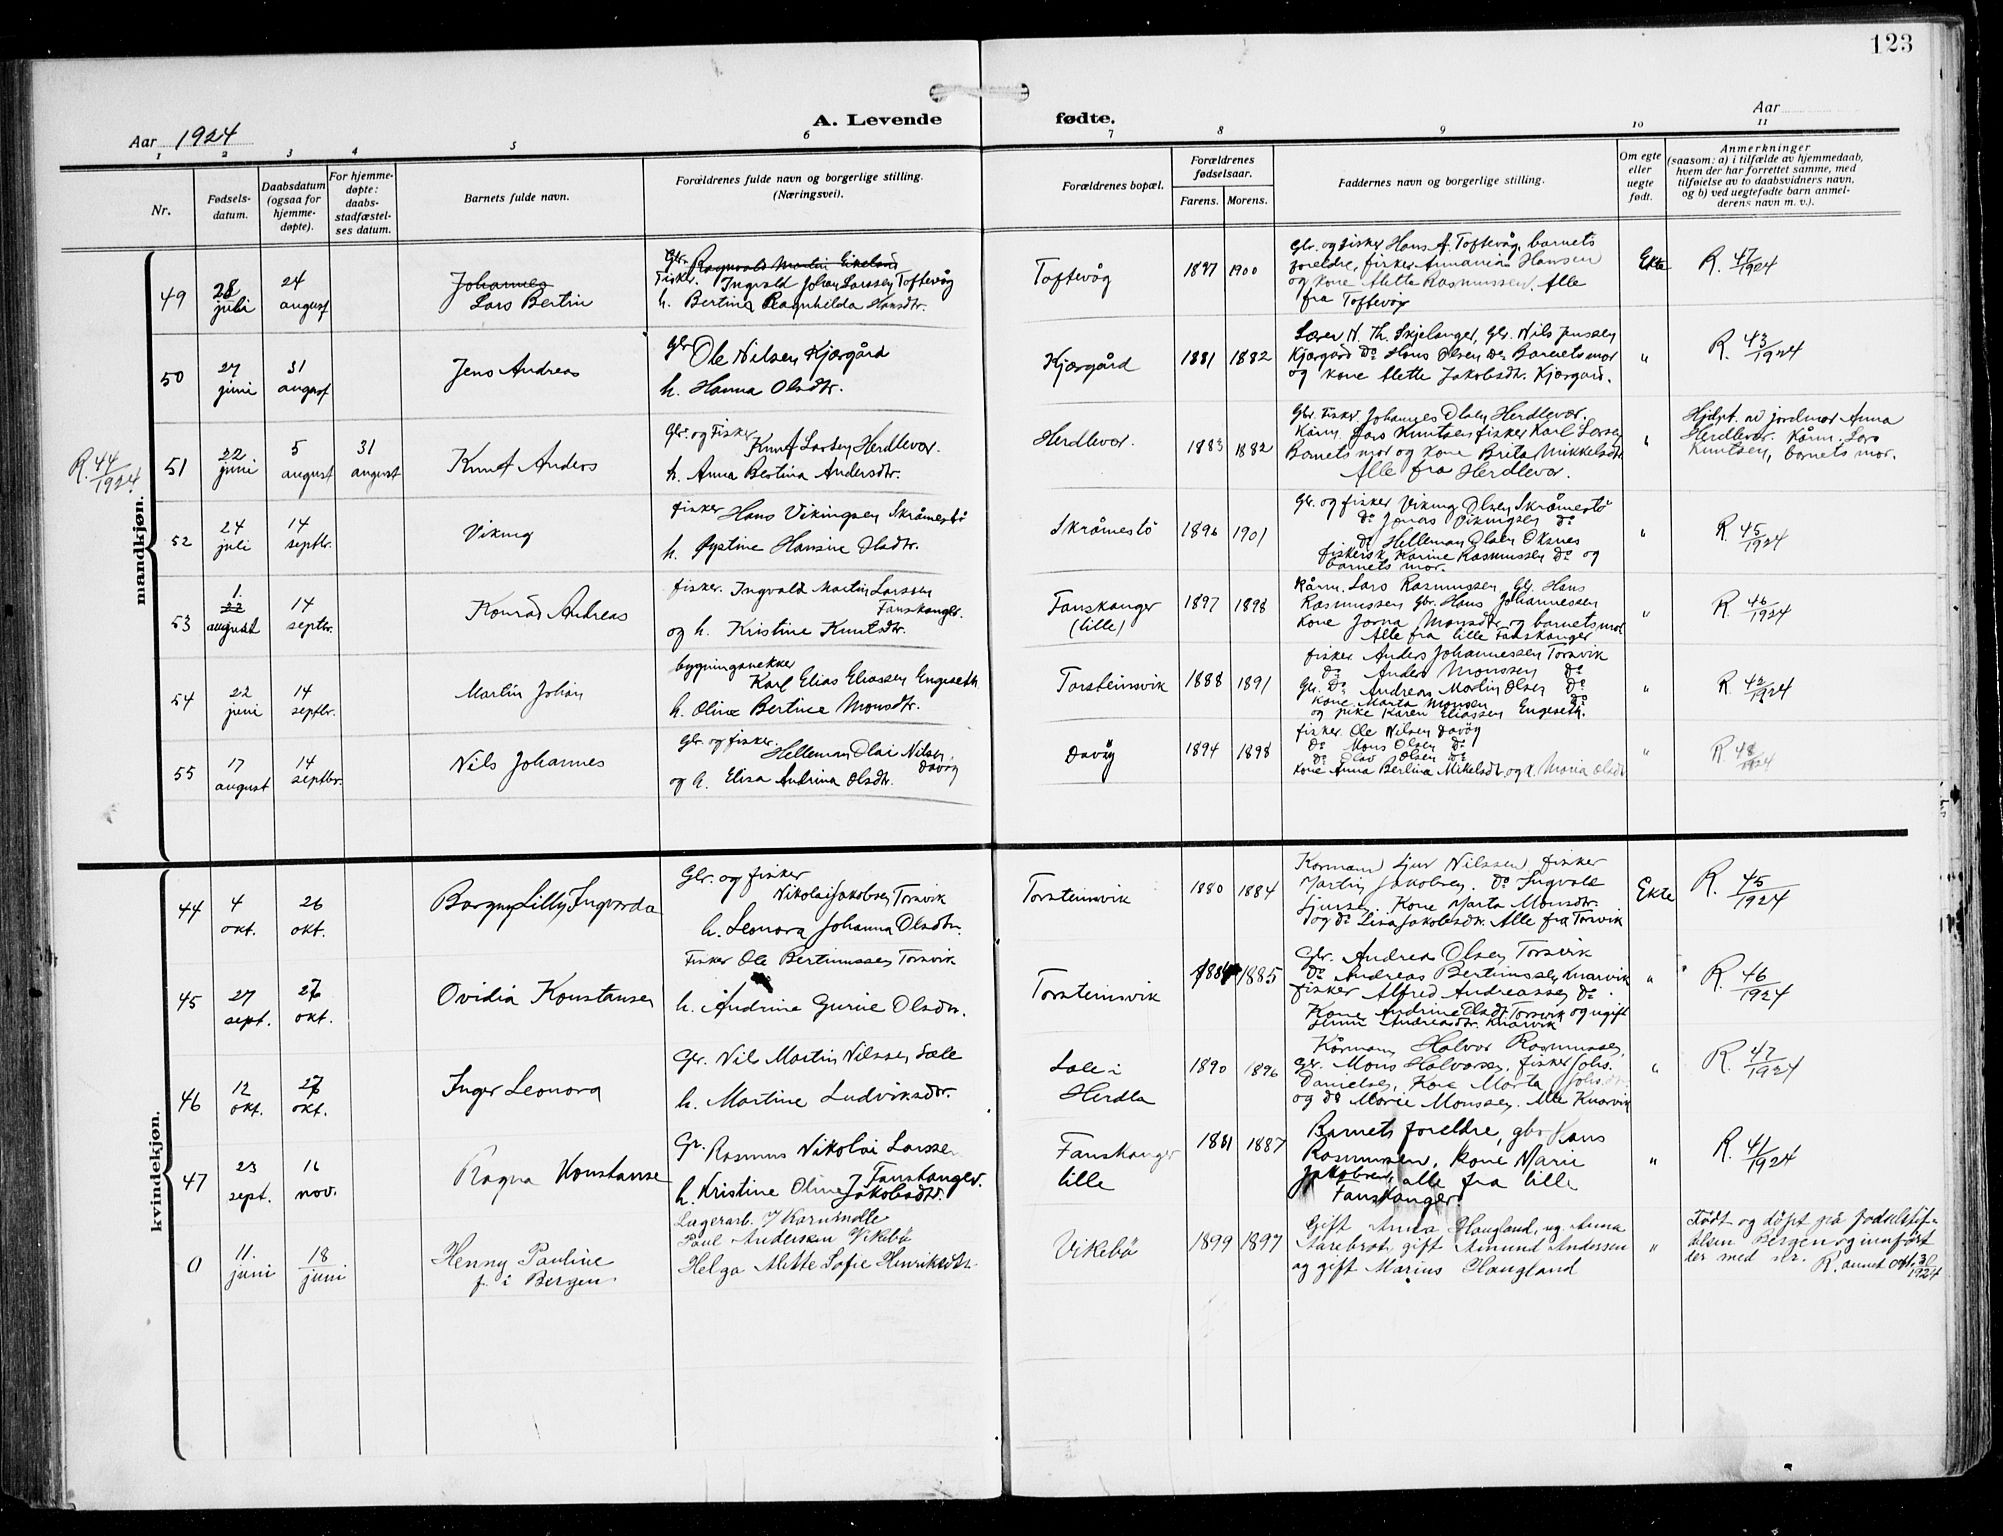 123
Aar 1924
A. Levende
fødte.
Aar
1 2 3 4 5 6 7 8 9 10 11
Nr.
Fødsels-
datum.
Daabsdatum
(ogsaa for
hjemme-
døpte).
For hjemme-
døpte:
daabs-
stadfæstel-
ses datum.
Barnets fulde navn.
Forældrenes fulde navn og borgerlige stilling.
(Næringsvei).
Forældrenes bopæl.
Forældrenes
fødselsaar.
Farens. Morens.
Faddernes navn og borgerlige stilling.
Om egte
eller
uegte
født.
Anmerkninger
(saasom: a) i tilfælde av hjemmedaab,
hvem der har forrettet samme, med
tilføielse av to daabsvidners navn,
og b) ved uegtefødte barn anmel-
derens navn m. v.).
mandkjøn.
49
28
juli
24
august
Johannes
Lars Bertin
Gbr. Ragnvald Martin Eikeland
Fisker. Ingvald Johan Larssen Toftevåg
h. Bertina Ragnhilda Hansdtr.
Toftevåg
1897 1900
Gbr. og fisker Hans A. Toftevåg, barnets
foreldre, fisker Annanias Hansen
og kone Mette Rasmussen. Alle
fra Toftevåg
Ekte
R. 47/1924
50
27
juni
31
august
Jens Andreas
Gbr Ole Nilsen Kjærgård
h. Hanna Olsdtr.
Kjærgård
1881 1882
Lærer N. Th. Skjelanger, Gbr. Nils Jenssen
Kjærgård Do Hans Olsen Do Barnets mor
og kone Mette Jakobsdtr. Kjærgård.
"
R. 43/1924
R. 44/1924
51
22
juni
5
august
31
august
Knut Anders
Gbr. og Fisker
Knut Larsen Herdlevær.
h. Anna Bertina Andersdtr.
Herdlevær.
1883 1882
Gbr. Fisker Johannes Olsen Herdlevær.
Kårm. Lars Knutsen fisker Karl Larsen
Barnets mor og kone Brita Mikkelsdtr
Alle fra Herdlevær.
"
Hjdpt. av jordmor Anna
Herdlevær. Kårm. Lars
Knutsen, barnets mor.
52
24
juli
14
septbr.
Viking
fisker Hans Vikingsen Skråmestø
h. Øystine Hansine Olsdtr.
Skråmestø
1896 1901
Gbr. og fisker Viking Olsen Skråmestø
Do Jonas Vikingsen Do
Do Helleman Olsen Oksnes
fiskersk. Karine Rasmussen Do og
barnets mor.
"
R. 45/1924
53
1.
22
august
14
septbr.
Konrad Andreas
fisker. Ingvald Martin Larssen
Fanskanger.
og h. Kristine Knutsdtr.
Fanskanger
(lille)
1897 1898
Kårm. Lars Rasmussen, Gbr. Hans
Rasmussen Gbr. Hans Johannessen
kone Jorna Monsdtr og barnets mor
Alle fra lille Fanskanger
"
R. 46/1924
54
22
juni
14
septbr.
Martin Johan
bygningssnekker
Karl Elias Eliassen Engeseth
h. Oline Bertine Monsdtr.
Torsteinsvik
1888 1891
fisker. Anders Johannessen Torsvik
Do Anders Monssen Do
Gbr. Do Andreas Martin Olsen Do
Kone Marta Monsen Do
og pike Karen Eliassen Engeseth.
"
R. 42/1924
55
17
august
14
septbr.
Nils Johannes
Gbr. og fisker.
Helleman Olai Nilsen
Davåg
og h. Elisa Andrina Olsdtr.
Davåg
1894 1898
fisker. Ole Nilsen Davåg
Do Mons Olsen Do
Do Olav Olsen Do
kone Anna Berlina Mikelsdtr og k. Maria Olsdtr
"
R. 48/1924
kvindekjøn.
44
4
okt.
26
okt.
Borgny Lilly Ingvarda
Gbr. og fisker
Nikolai Jakobsen Torsvik
h. Leonora Johanna Olsdtr.
Torsteinsvik
1880 1884
Kårmann Sjur Nilssen, fisker
Martin Jakobsen. Do Ingvald
Sjursen. Kone Marta Monsdtr.
og Do Lisa Jakobsdtr. Alle fra Torsvik
Ekte
R. 45/1924
45
27
sept.
26
okt.
Ovidia Konstanse
Fisker Ole Bertinussen Torsvik
h. Andrine Gurine Olsdtr.
Torsteinsvik
1884 1885
Gbr. Andrea Olsen Torsvik
Do Andreas Bertinussen Knarvik
fisker Alfred Andreassen Do
Kone Andrine Olsdtr Torsvik og ugift
Andreasdtr. Knarvik
"
R. 46/1924
46
12
okt.
26
okt.
Inger Leonora
Gbr. Nils Martin Nilssen Sæle
h. Martine Ludviksdtr.
Sæle i
Herdla
1890 1896
Kårmann Halvor Rasmussen,
Gbr. Mons Halvorsen, fisker Johs.
Danielsen, Kone Marta Johsdtr.
og do Marie Monssen. Alle Knarvik
"
R. 47/1924
47
23
sept.
16
nov.
Ragna Konstanse
Gr. Rasmus Nikolai Larssen
Fanskanger.
h. Kristine Oline Jakobsdtr.
Fanskanger
lille
1881 1887
Barnets foreldre, gbr. Hans
Rasmussen, kone Marie
Jakobsen, alle fra lille
Fanskanger.
"
R. 41/1924
0
11.
juni
18
juni
Henny Pauline
f. i Bergen
Lagerarb.
Paul Andersen Vikebø
Helga Mette Sofie Henriksdtr.
Vikebø
1899 1897
Gift Anna Haugland, ug. Anna
Storebrot, gift Amund Anderssen
og gift Marius Haugland
"
Født og døpt på fødselstif-
telsen Bergen og innført
der med nr. R. annet 31/1924